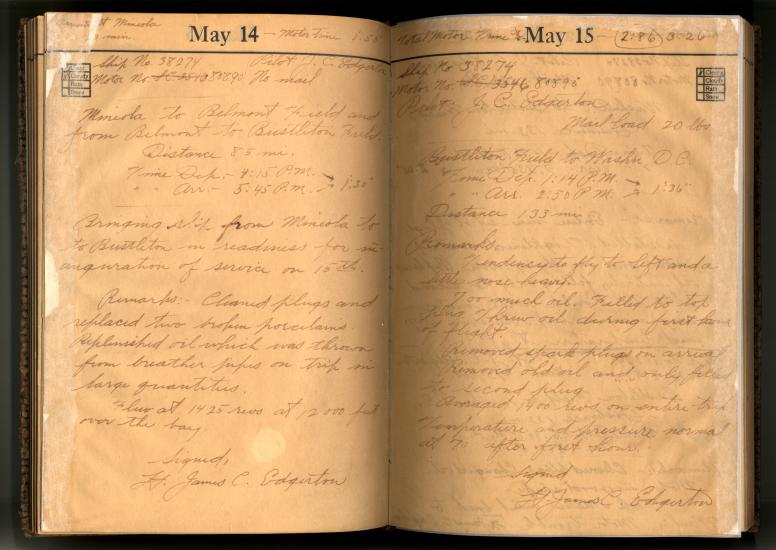 at Mineola
min.
May 14
Motor Time 1:55
Ship No 38274 Pilot J. C. Edgerton
Motor No 80890 No mail
Clear
Cloudy
Rain
Snow
Mineola to Belmont Field and
from Belmont to Bustleton Field.
Distance 85 mi.
Time Dep. - 4:15 P.M.
" Arr. - 5:45 P.M. → 1:30
Bringing ship from Mineola to
to Bustleton in readiness for in-
auguration of service on 15th.
Remarks:- Cleaned plugs and
replaced two broken porcelains.
Replenished oil which was thrown
from breather pipes on trip in
large quantities.
Flew at 1425 revs at 12000 feet
over the bay.
Signed,
Lt. James C. Edgerton
Total Motor Time
May 15
2:86 3:26
Ship No 38274
Motor No. 80890
Pilot: J. C. Edgerton
Clear
Cloudy
Rain
Snow
Mail load 20 lbs
Bustleton Field to Washn D.C.
Time Dep. 1:14 P.M.
" Arr. 2:50 P.M. → 1:36
Distance 133 mi
Remarks
Tendency to fly to left and a
little nose heavy.
Too much oil. Filled to top
plug threw oil during first hour
of flight.
Removed spark plugs on arrival
Removed old oil and only filled
to second plug
Averaged 1400 revs on entire trip
Temperature and pressure normal
at 70 after first hour.
Signed
Lt. James C. Edgerton